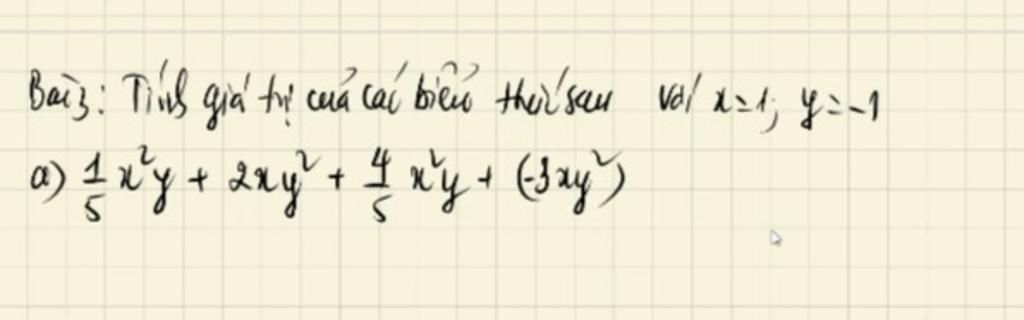 Bài 3: Tính giá trị của các biểu thức sau với x=1; y=-1
a) 1/5 x²y + 2xy² + 4/5 x²y + (-3xy²)